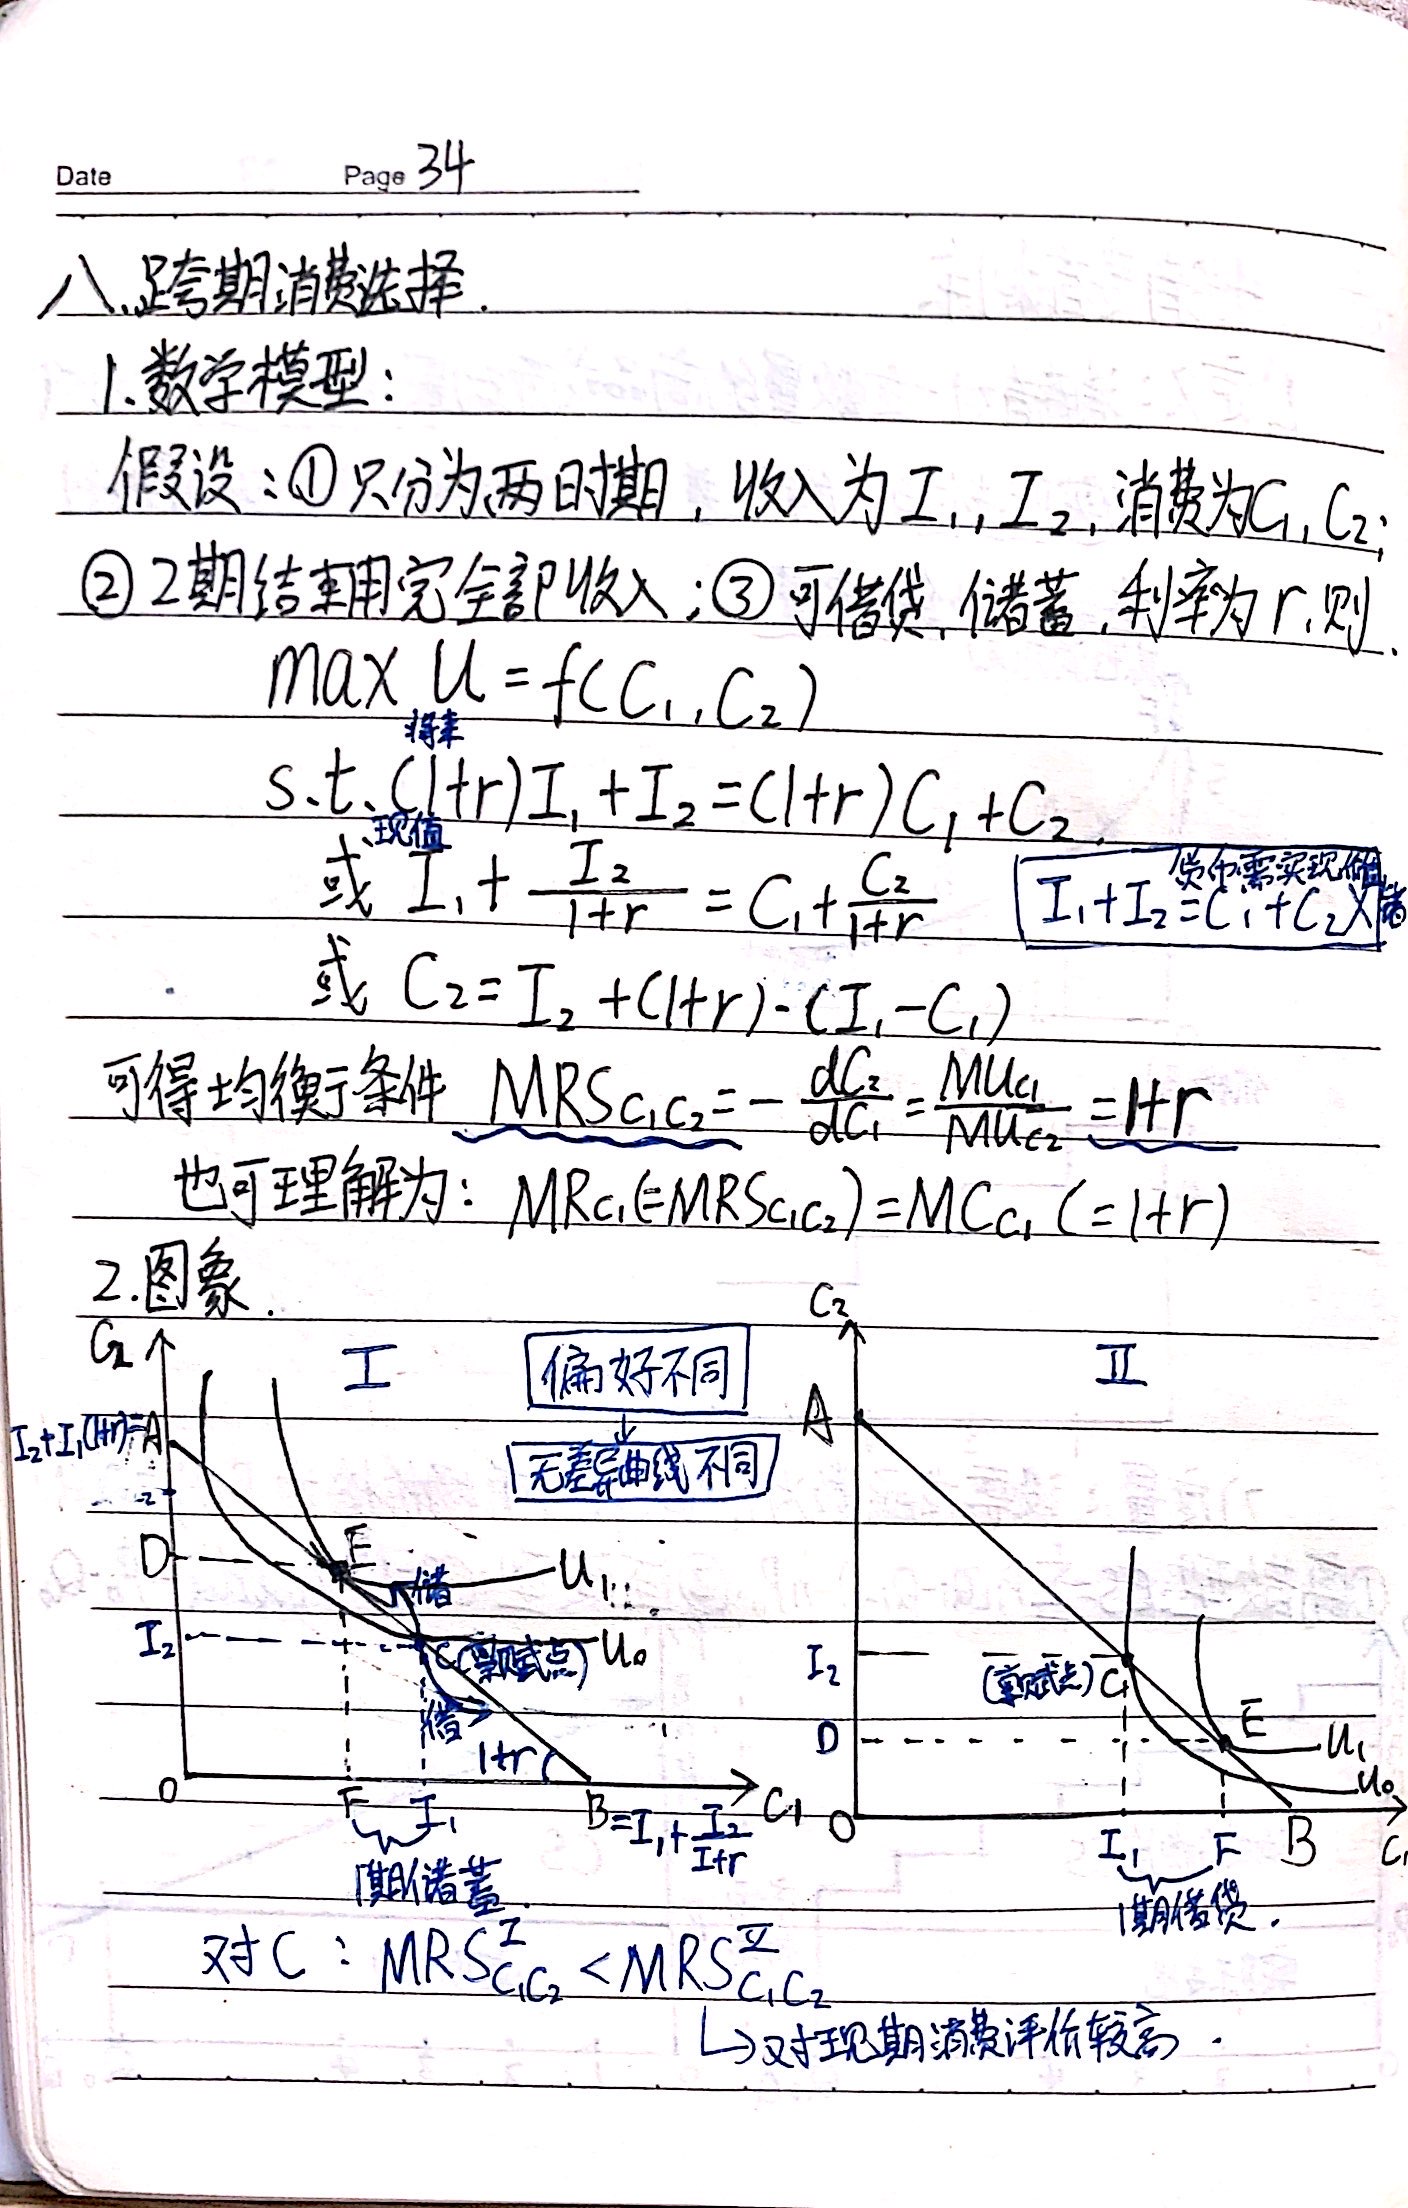 Date Page 34
八、跨期消费选择.
1.数学模型:
假设:①只分为两时期,收入为I₁,I₂,消费为C₁,C₂;
②2期结束用完全部收入;③可借贷,储蓄,利率为r,则
max U=f(C₁,C₂)
将来
s.t.(1+r)I₁+I₂=(1+r)C₁+C₂.
现值
或 I₁+I₂/(1+r)=C₁+C₂/(1+r)
货币需实现价值
I₁+I₂=C₁+C₂X
或 C₂=I₂+(1+r)·(I₁-C₁)
可得均衡条件 MRS_C₁C₂=-dC₂/dC₁=MU_C₁/MU_C₂=1+r
也可理解为: MR_C₁(=MRS_C₁C₂)=MC_C₁(=1+r)
2.图象.
C₂ I 偏好不同 C₂ II
↓
无差异曲线不同
I₂+I₁(1+r)=A A
D E U₁
储
I₂ C(禀赋点) U₀ I₂ (禀赋点)C
借
1+r D E U₁
U₀
O F I₁ B=I₁+I₂/(1+r) C₁ O I₁ F B C₁
1期储蓄. 1期借贷.
对C: MRS^I_C₁C₂<MRS^II_C₁C₂
↳对现期消费评价较高.